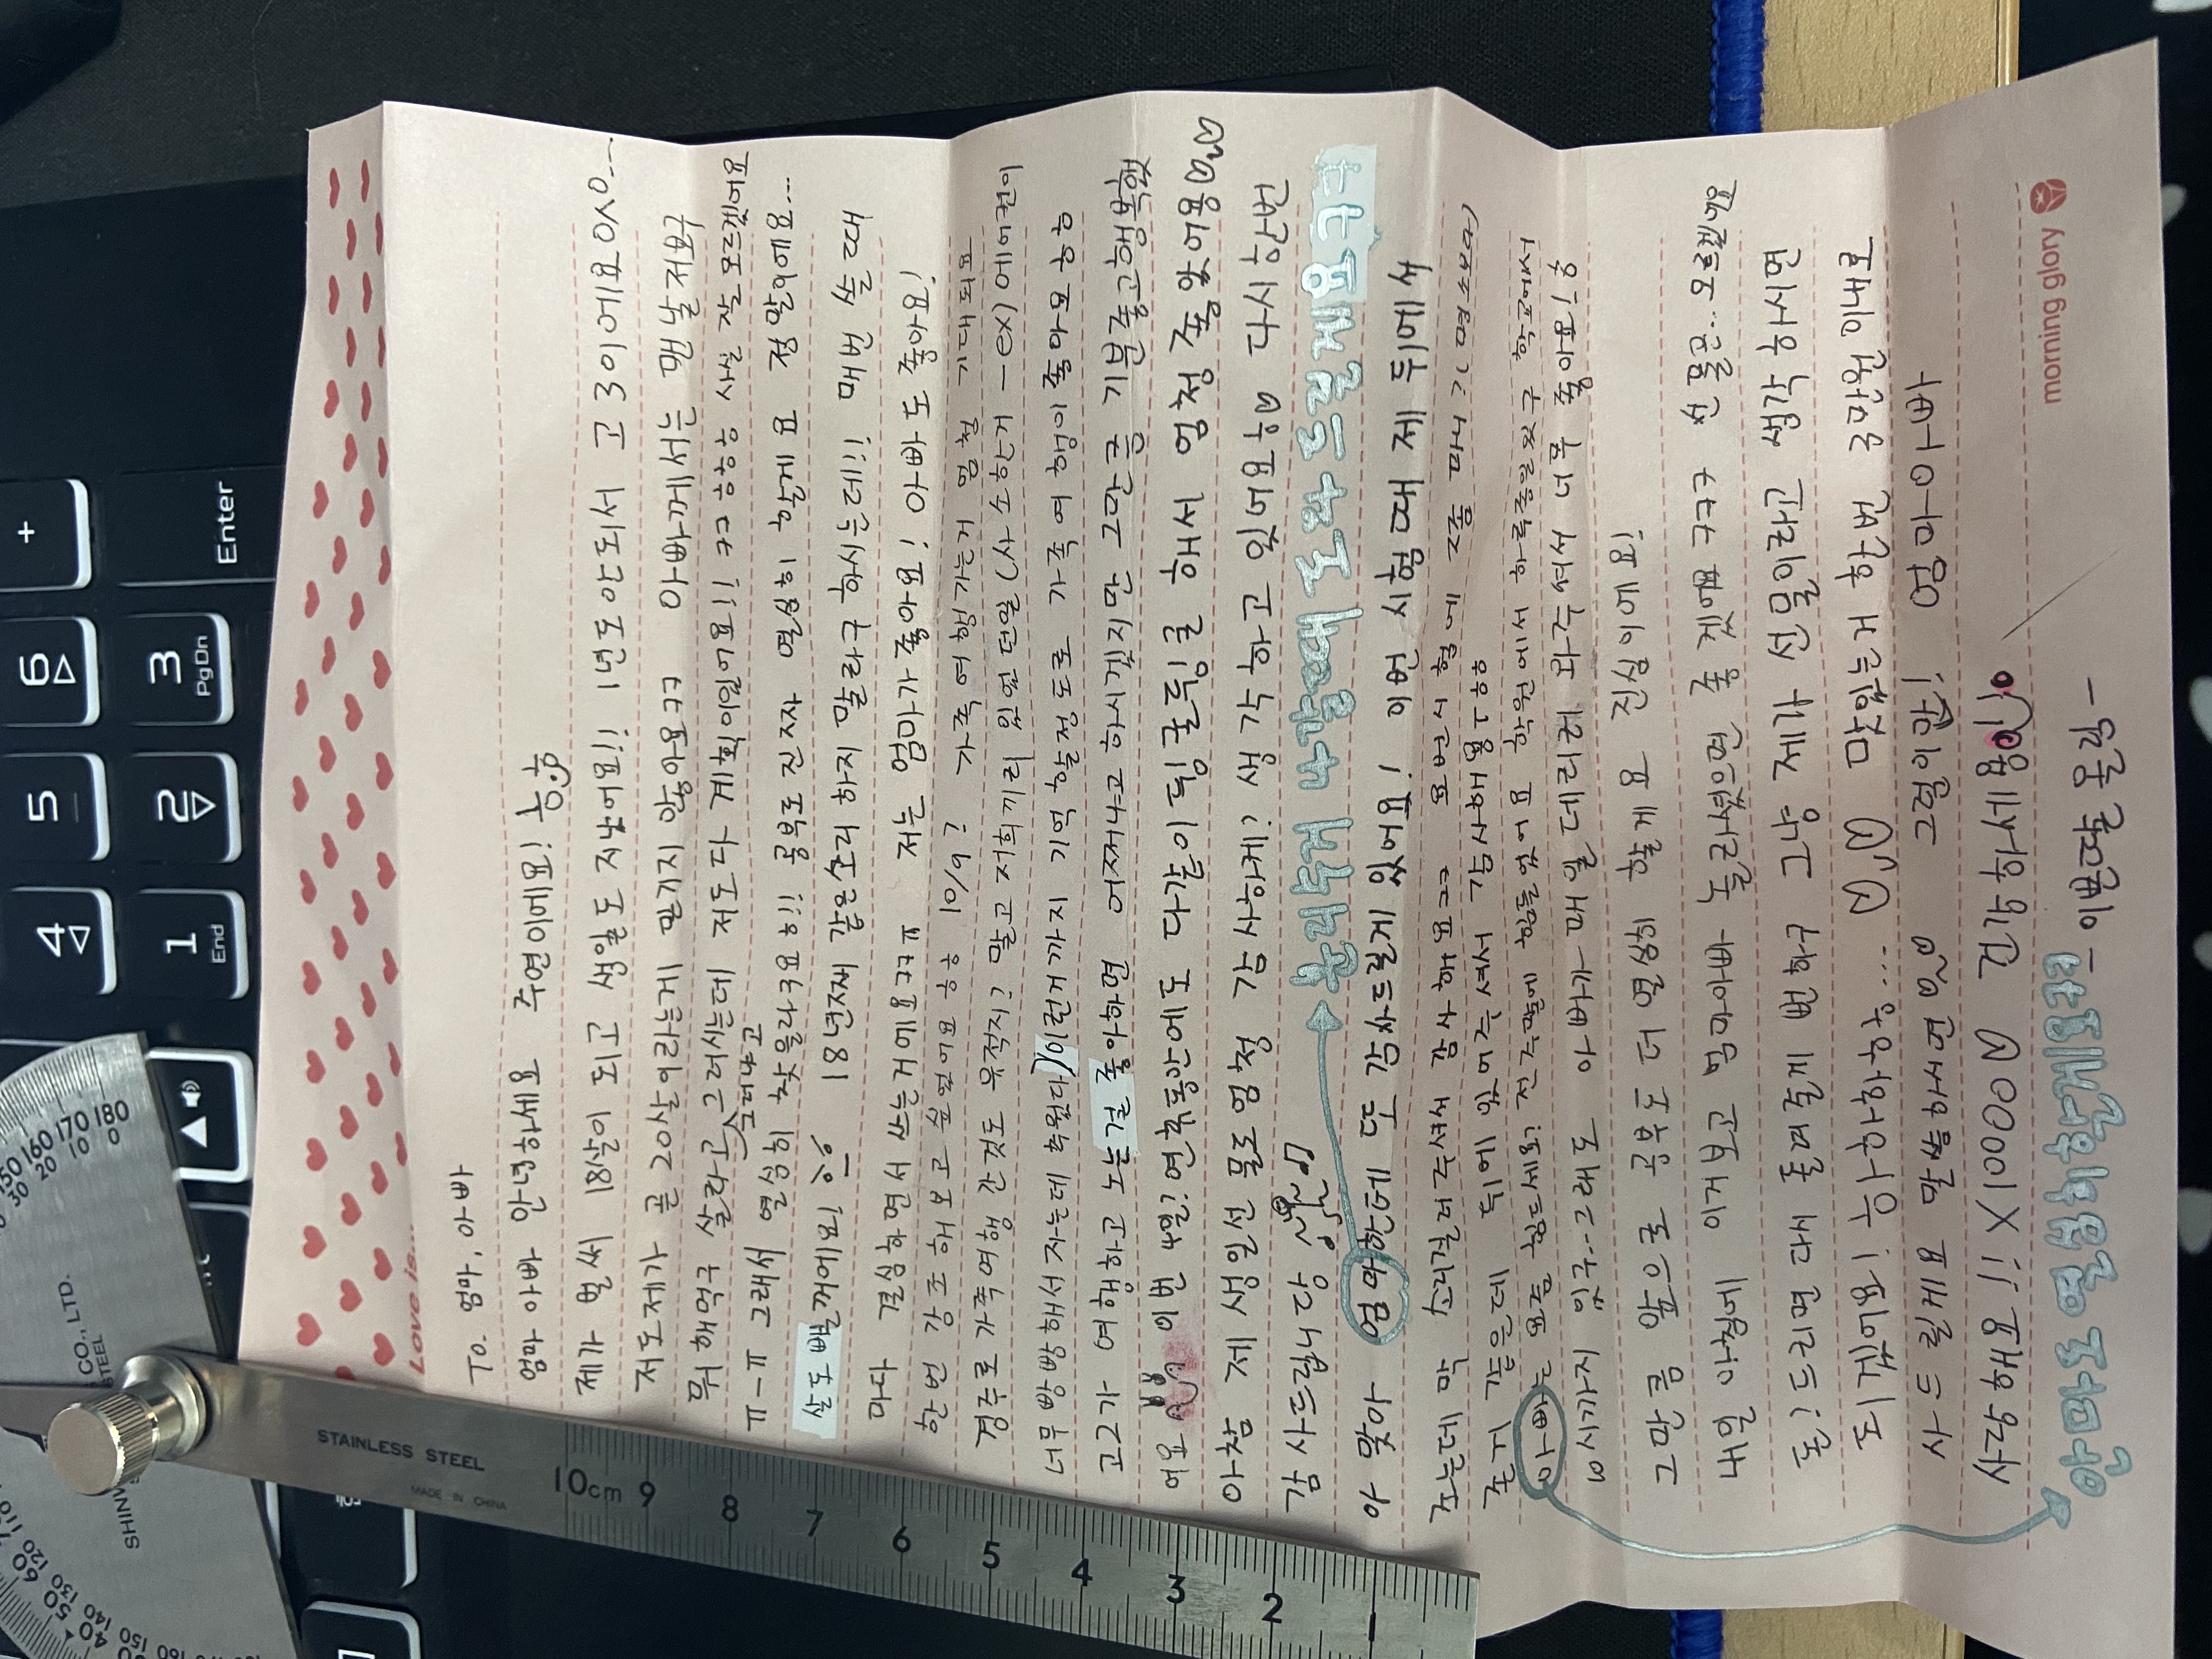 4
5
6
+
1
End
2
3
PgDn
Enter
CO., LTD.
STEEL
STAINLESS STEEL
MADE IN CHINA
10cm 9 8 7 6 5 4 3 2 1
Love is...
To. 엄마, 아빠
엄마 아빠 안녕하세요 주연이에요! 흐흐
제가 벌써 18살이 되고 생일도 지났어요!! 1년도안되서 고3이에요ㅇㅅㅇ...
저도제가 곧 20살이라는게 믿기지 않아요ㅋㅋ 아빠께서는 맨날저보구
뭐해먹구 살라고 그러시는데 저도다 계획이있어요!! ㅋㅋ ㅎㅎㅎ 사실 잘모르겠어요
그러냐고
ㅠ-ㅠ 그래서 열심히 찾을라구요ㅎ!! 공부도진짜 열심히 할게요 정말이에요...
살도뺄꺼에요! 18년째 같은소리 하지 말라구 하시는데!! 매번 쓸때
마다 결심하면서 쓰는거에요ㅋㅋㅠ 저는 엄마가 좋아요! 아빠도 좋아요!
한번 강조해보고 싶었어요 ㅎㅎ 10/9? 가족여행가는거 엄청 기대되요
경주로 가족여행 간것도 유적지? 말고 저희끼리 있었던일 (사소한거 -ex) 에어컨이
너무빵빵해서 자는데 추웠다)이런거까지 기억할정도로 가족여행이 좋아요 ㅎㅎ
고3가 여행하고 노는걸 좋아하면 어쩌냐고 하시겠지만 그만큼 기분좋고행복했
어요 이번 4일? 연휴동안에도 다같이 뒹굴뒹굴 해서 엄청 좋았어용♡.♡
아참 제 생일선물도엄청 감사하게? 생각하고 있어요ㅎ♡ 다시한번
감사드립니당
분리수거 나갈때 도와드릴게요ㅋㅋ
아 맞아 엄마한테 또 감사드릴게 있어요! 이번 시험때 제 뒤에서
조는데 막 소리질러주셔서 감사해요ㅋㅋ 요번시험에 좀 (평소보다)
존거 같은데 뒤에 있어주셔서 감사해용ㅜㅎㅎ
아빠는 요즘 힘드세요? 전 주말에 힘들었어요 학원에서 하루종일있구 학교에서
10시까지 있구..그래도 아빠가 매일 데리러 와주셔서 너무 좋아요!ㅎ
그만큼 앞으로 공부도 더 열심히 할게요 진심이에요!
내일 아침에 이거보고 엄마아빠 놀라셨으면 좋겠어요 ㅋㅋㅋ 선물은.. 모르겠어요
돈? 드리면 다시 돌려줄게 뻔하구 그냥 제가 선물이라고 생각하시면
되겠어요! 하하하ㅎㅎ... ♡.♡ 맛있는거 한번 3만원 이내로
사드릴게요 말씀하시면♡~♡ 그럼이만! 엄마아빠
사랑해요!! X10000♡ 건강하세용!!
안마도열심히할게요ㅋㅋ
- 이쁜딸 올림 -
morning glory